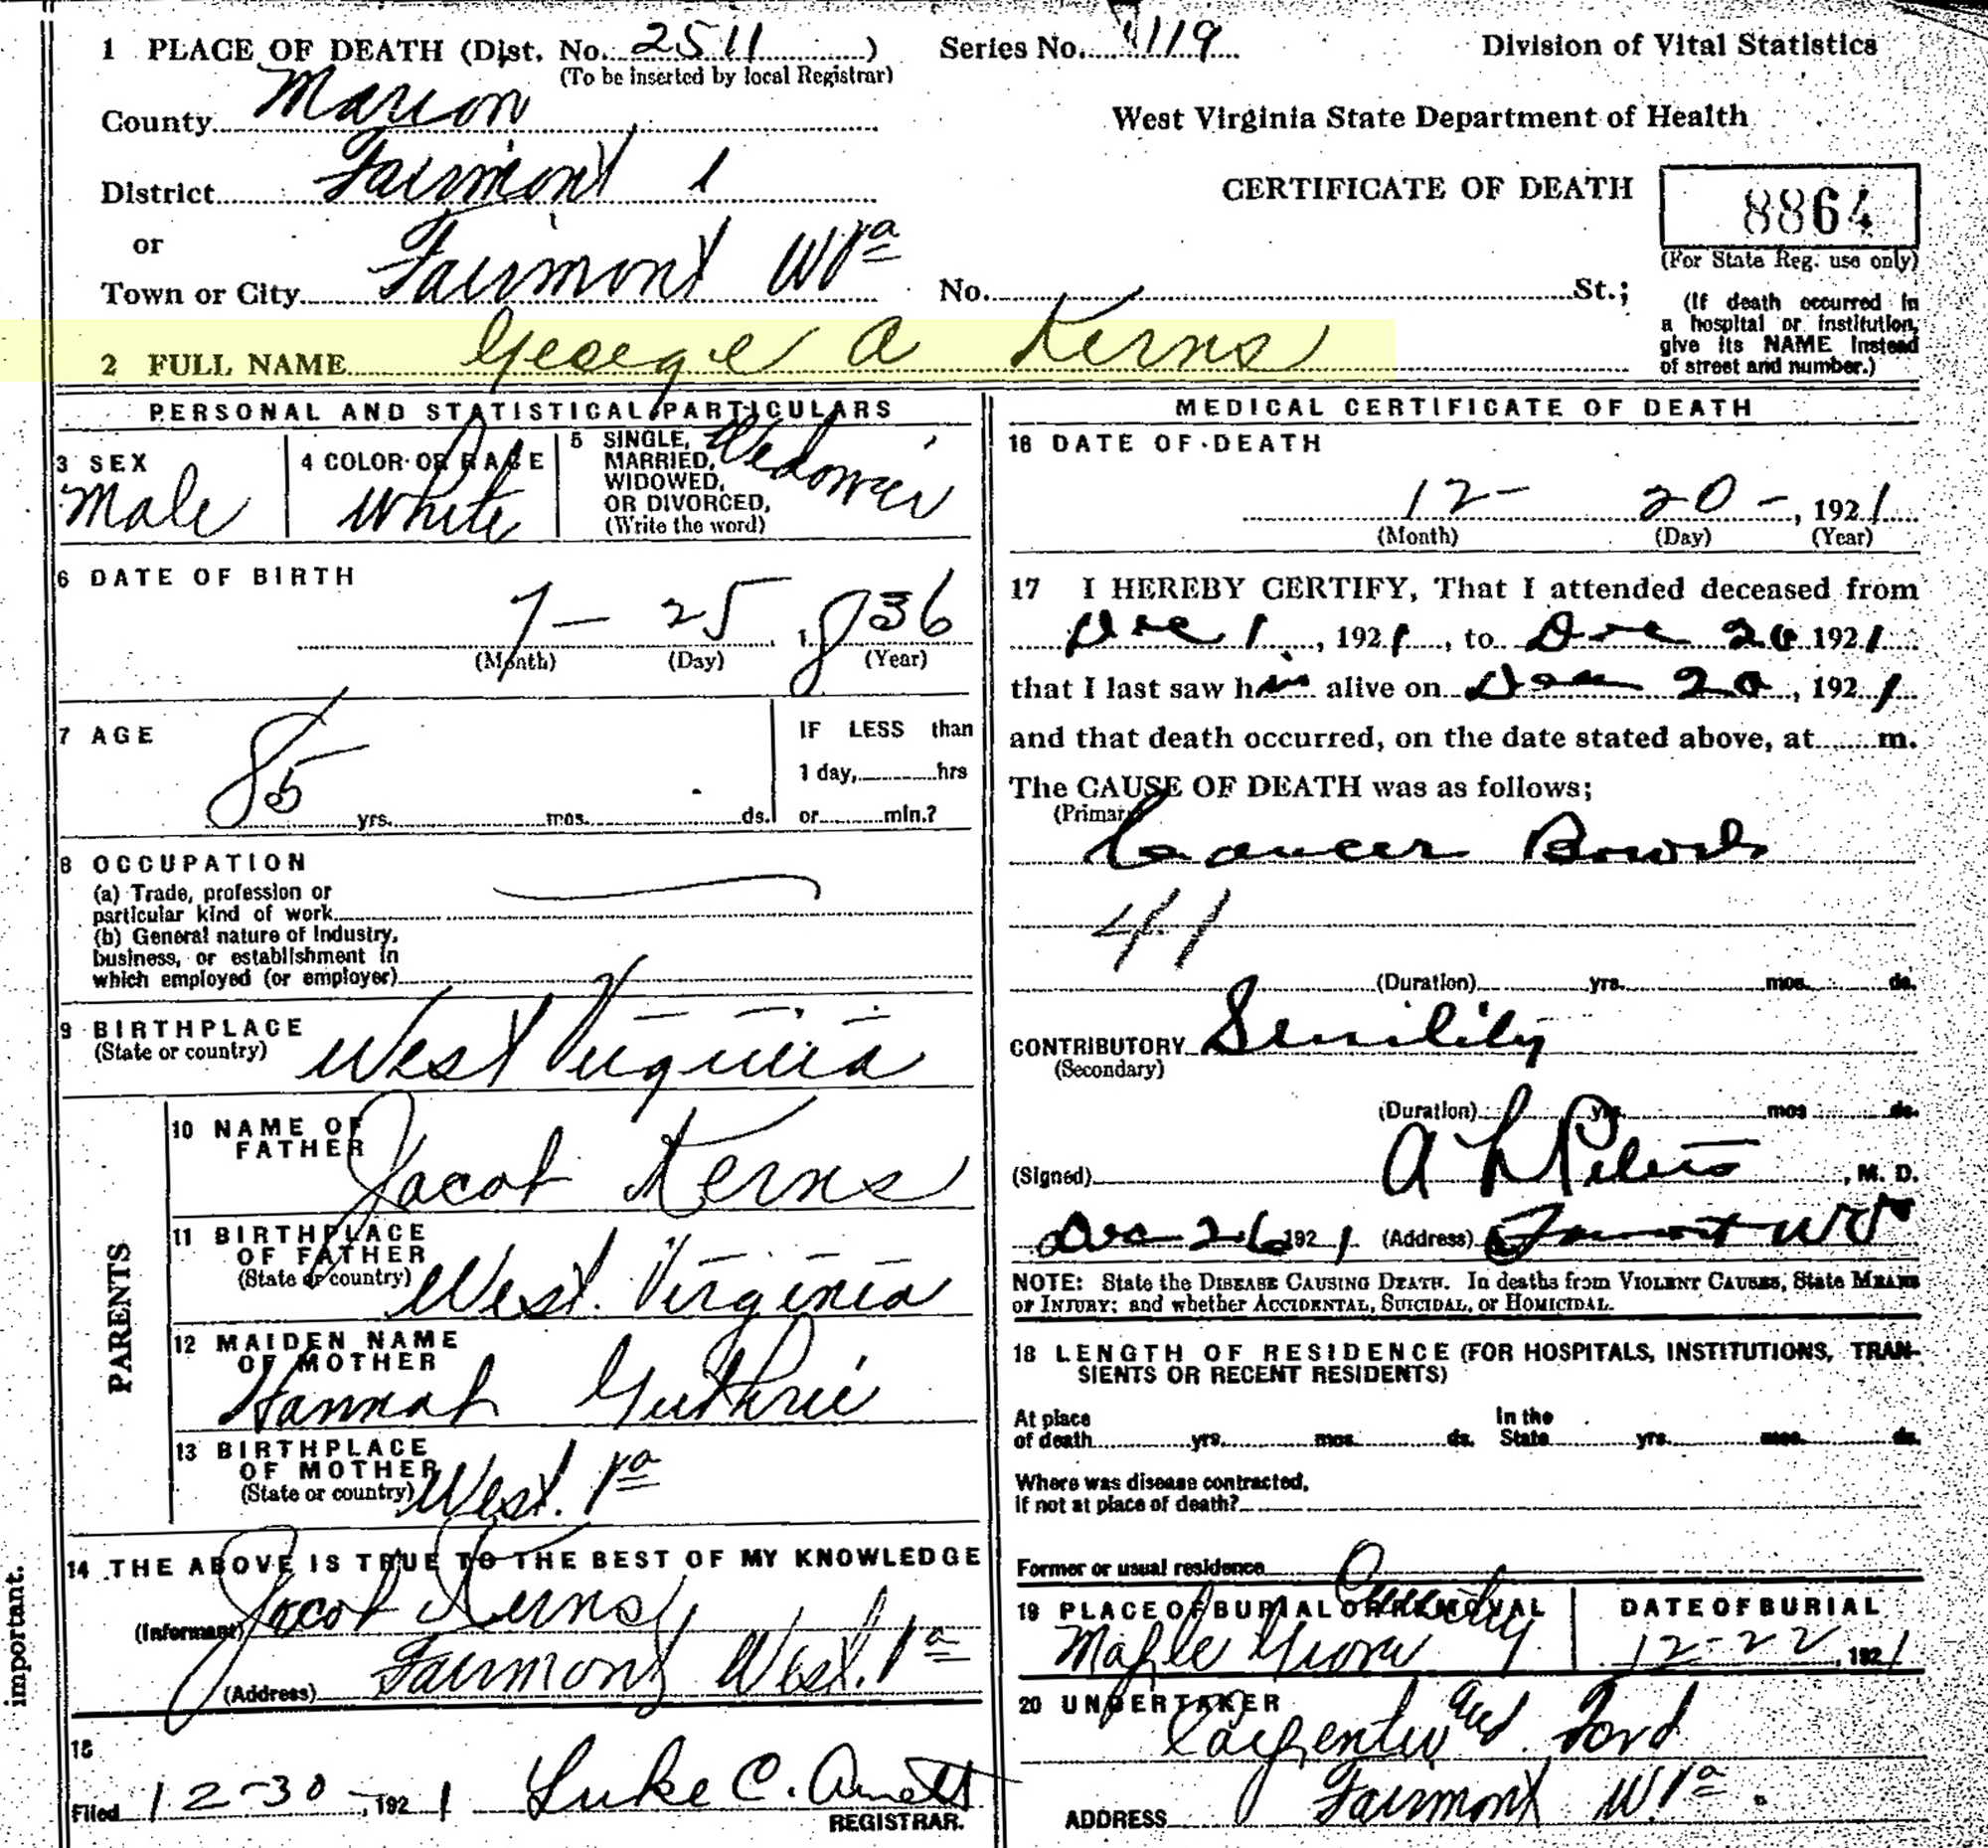 1 PLACE OF DEATH (Dist. No. 2511)
(To be inserted by local Registrar)
Series No. 119
Division of Vital Statistics
County Marion
West Virginia State Department of Health
District Fairmont 1
CERTIFICATE OF DEATH
8864
(For State Reg. use only)
or
Town or City Fairmont W Va
No. St.;
(If death occurred in
a hospital or institution,
give its NAME instead
of street and number.)
2 FULL NAME George A Kerns
PERSONAL AND STATISTICAL PARTICULARS
3 SEX
Male
4 COLOR OR RACE
White
5 SINGLE,
MARRIED,
WIDOWED,
OR DIVORCED,
(Write the word)
Widower
6 DATE OF BIRTH
7 - 25 1836
(Month) (Day) (Year)
7 AGE
85 yrs. mos. ds.
IF LESS than
1 day, hrs
or min.?
8 OCCUPATION
(a) Trade, profession or
particular kind of work
(b) General nature of Industry,
business, or establishment in
which employed (or employer)
9 BIRTHPLACE
(State or country) West Virginia
PARENTS
10 NAME OF
FATHER Jacob Kerns
11 BIRTHPLACE
OF FATHER
(State or country) West. Virginia
12 MAIDEN NAME
OF MOTHER
Hannah Guthrie
13 BIRTHPLACE
OF MOTHER
(State or country) West. Va
14 THE ABOVE IS TRUE TO THE BEST OF MY KNOWLEDGE
(Informant) Jacob Kerns
(Address) Fairmont West. Va
important.
15
Filed 12-30-, 1921 Luke C. Arnett
REGISTRAR.
MEDICAL CERTIFICATE OF DEATH
16 DATE OF DEATH
12- 20-, 1921
(Month) (Day) (Year)
17 I HEREBY CERTIFY, That I attended deceased from
Dec 1, 1921, to Dec 20 1921
that I last saw him alive on Dec 20, 1921
and that death occurred, on the date stated above, at m.
The CAUSE OF DEATH was as follows;
(Primary)
Cancer Bowels
41
(Duration) yrs. mos. ds.
CONTRIBUTORY Senility
(Secondary)
(Duration) yrs. mos ds.
(Signed) A L Peters, M. D.
Dec 26 1921 (Address) Fairmont W V
NOTE: State the DISEASE CAUSING DEATH. In deaths from VIOLENT CAUSES, State MEANS
OF INJURY; and whether ACCIDENTAL, SUICIDAL, or HOMICIDAL.
18 LENGTH OF RESIDENCE (FOR HOSPITALS, INSTITUTIONS, TRAN-
SIENTS OR RECENT RESIDENTS)
At place
of death yrs. mos. ds.
In the
State yrs. mos. ds.
Where was disease contracted,
if not at place of death?
Former or usual residence
19 PLACE OF BURIAL OR REMOVAL
Maple Grove
DATE OF BURIAL
12-22, 1921
20 UNDERTAKER
Carpenter and Ford
ADDRESS Fairmont W. Va.